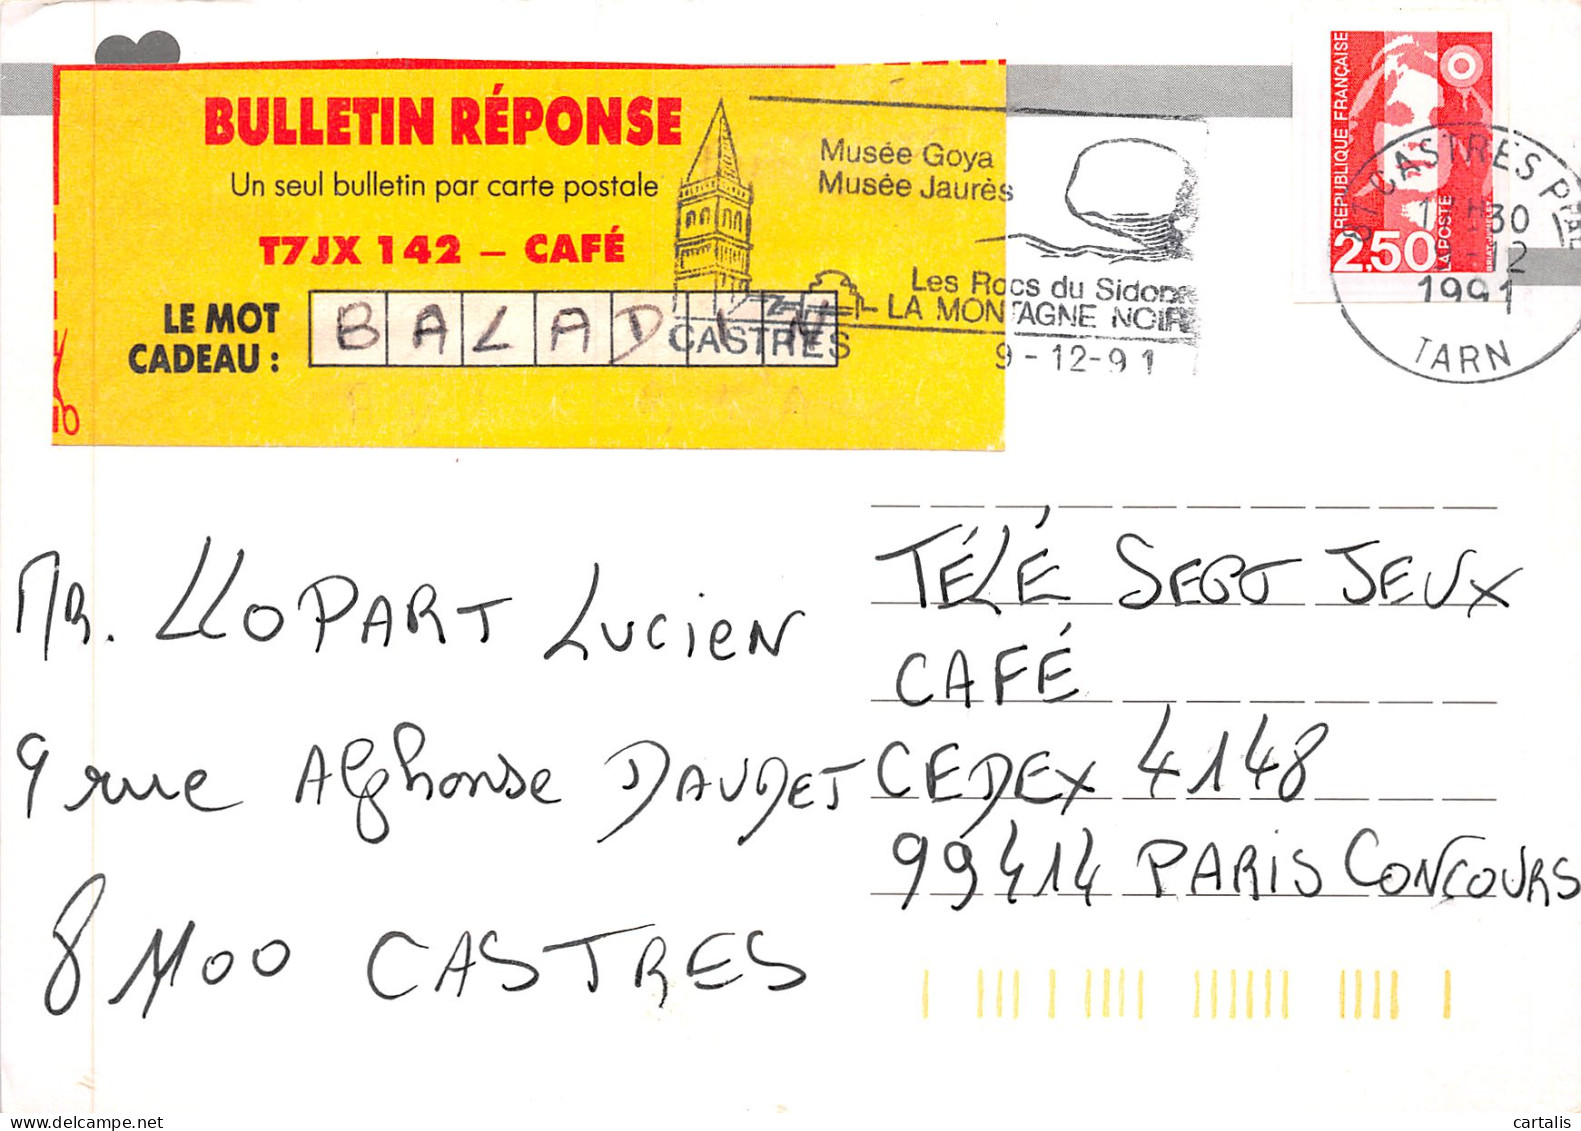 BULLETIN RÉPONSE
Un seul bulletin par carte postale
T7JX 142 – CAFÉ
LE MOT
CADEAU :
BALADIN
Musée Goya
Musée Jaurès
Les Rocs du Sidobre
LA MONTAGNE NOIRE
CASTRES
9-12-91
REPUBLIQUE FRANÇAISE
LA POSTE
2,50
81 CASTRES PPAL
1991
TARN
MR. LLOPART LUCIEN
9 rue Alphonse DAUDET
81100 CASTRES
TÉLÉ SEPT JEUX
CAFÉ
CEDEX 4148
99414 PARIS CONCOURS
cartalis